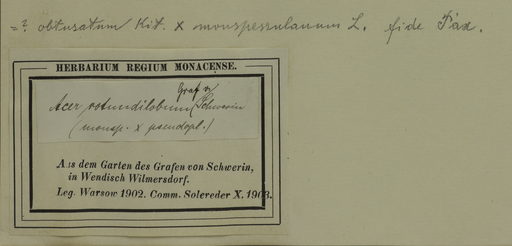 =? obtusatum Kit. x monspessulanum L. fide Pax.
HERBARIUM REGIUM MONACENSE.
Graf v.
Acer rotundilobum (Schwerin
(monsp. x pseudopl.)
Aus dem Garten des Grafen von Schwerin,
in Wendisch Wilmersdorf.
Leg. Warsow 1902. Comm. Solereder X. 1903.